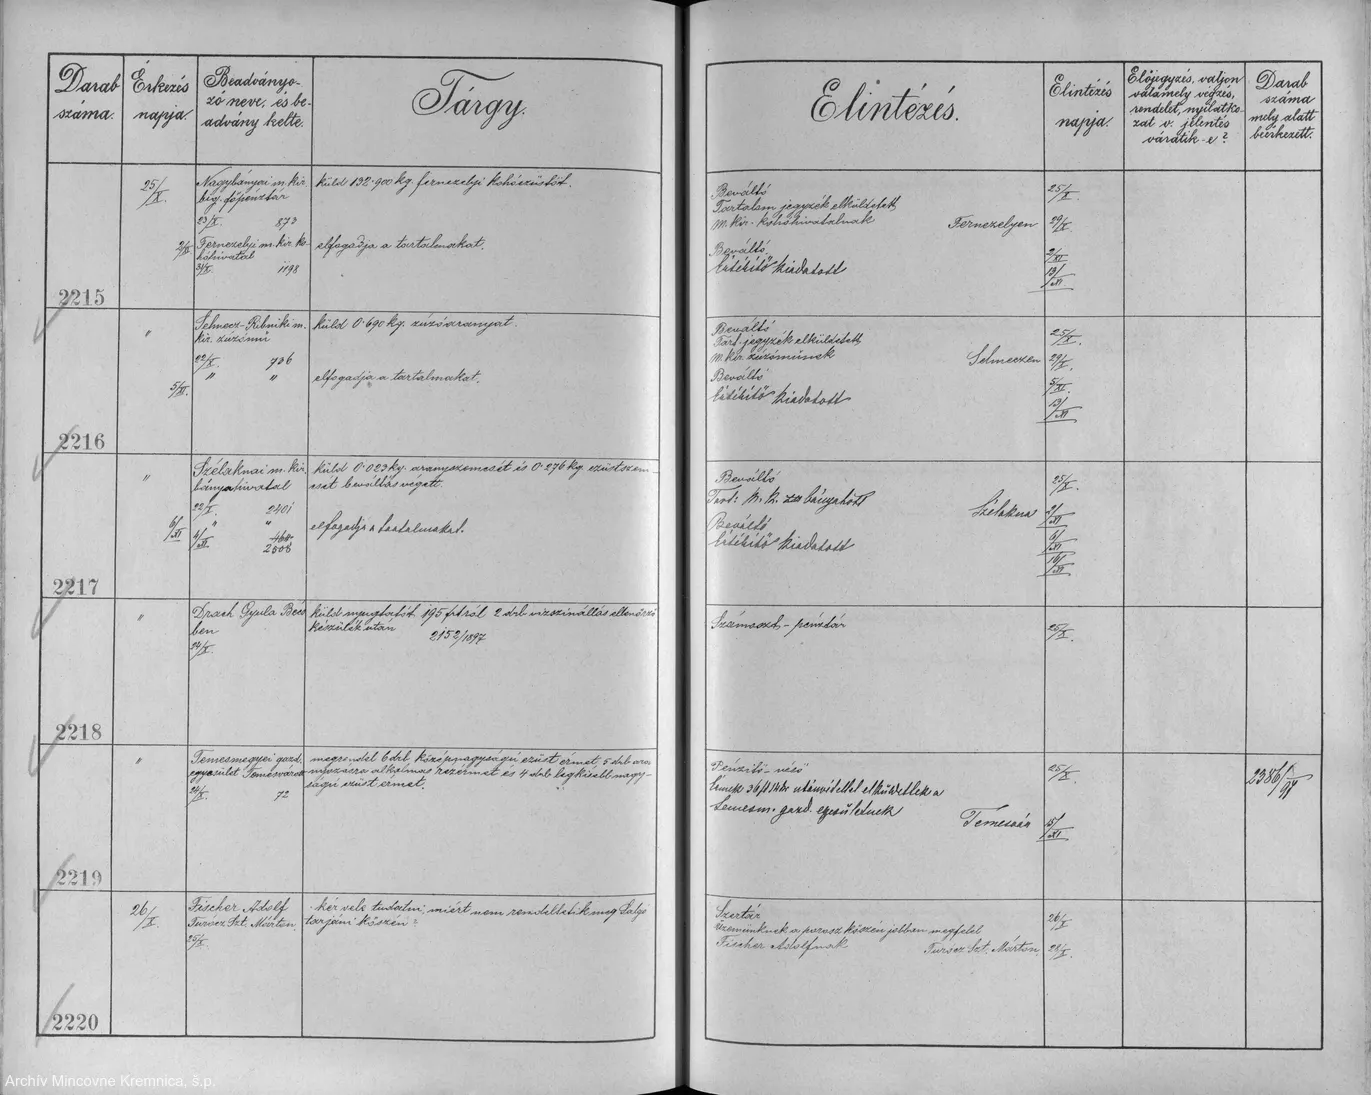 Darab száma.
Érkezés napja.
Beadványo-
zó neve, és be-
advány kelte.
Tárgy.
Elintézés.
Elintézés napja.
Előjegyzés, valjon
valamely végzés,
rendelet, nyilatko-
zat v. jelentés
váratik-e?
Darab
száma
mely alatt
beérkezett.
25/X.
Nagybányai m. kir.
küld 132.900 kg. fernezelyi kohóezüstöt.
főpénztár
23/X. 873
2/XI
Fernezelyi m. kir. ko-
hóhivatal
elfogadja a tartalmakat.
31/X. 1198
2215
Beváltó
25/X.
Tartalom jegyzék elküldetett
m. kir. kohóhivatalnak Fernezelyen
29/X.
Beváltó
2/XI
Értékítő kiadatott
13/XI
"
Selmecz-Ribniki m.
kir. zúzómű
küld 0.690 kg. zúzóaranyat.
22/X. 736
5/XI.
" "
elfogadja a tartalmakat.
2216
Beváltó
25/X.
Tart. jegyzék elküldetett
m. kir. zúzóműnek Selmeczen
29/X.
Beváltó
5/XI.
Értékítő kiadatott
13/XI
"
Szélaknai m. kir.
bányahivatal
küld 0.023 kg. aranyszemcsét és 0.276 kg. ezüstszem
csét beváltás végett.
22/X. 2401
6/XI
" "
elfogadja a tartalmakat.
4/XI.
2508
2217
Beváltó
25/X.
Szélakna
2/XI
Beváltó
6/XI
Értékítő kiadatott
16/XI
"
Drach Gyula Bécs
ben
küld nyugtatót 195 frtról 2 drb vízszinállás ellenőrző
készülék után 2152/1897
24/X.
2218
Számoszt.- pénztár
25/X.
"
Temesmegyei gazd.
egyesület Temesvárott
megrendel 6 drb. középnagyságú ezüst érmet 5 drb ara
nyozásra alkalmas rézérmet és 4 drb legkisebb nagy-
ságú ezüst érmet.
24/X. 72
2219
Pénzitő-véső
25/X.
2386/97
utánvétellel elküldettek a
temesm. gazd. egyesületnek Temesvár
15/XI
26/X.
Fischer Adolf
Turócz Szt. Márton.
kér vele tudatni, miért nem rendeltetik meg Salgó
tarjáni kőszén?
25/X.
2220
Szertár
26/X.
üzemünknek a porosz kőszén jobban megfelel
Fischer Adolfnak Turócz Szt. Márton.
28/X.
Archív Mincovne Kremnica, š.p.